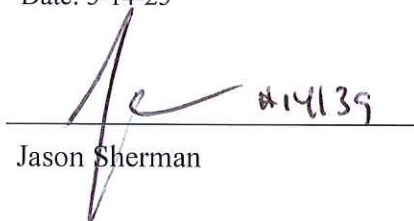 Date: 3-14-23
#14139
Jason Sherman